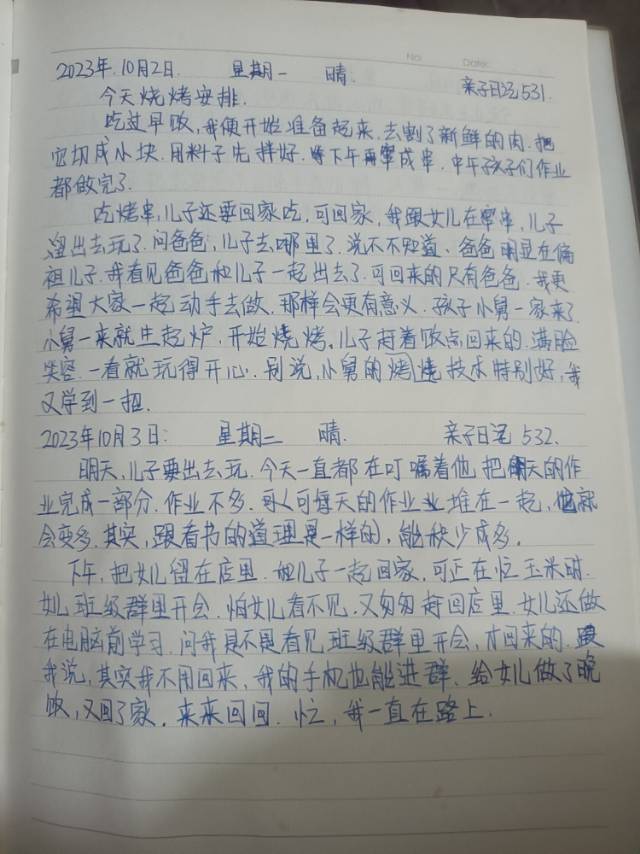 No. Date:
2023年.10月2日. 星期一 晴. 亲子日记531.
今天烧烤安排.
吃过早饭,我便开始准备起来.去割了新鲜的肉.把
它切成小块.用料子先拌好.等下午再穿成串.中午孩子们作业
都做完了.
吃烤串,儿子还要回家吃,可回家,我跟女儿在穿串,儿子
溜出去玩了.问爸爸,儿子去哪里了.说不不知道、爸爸明显在偏
袒儿子.我看见爸爸和儿子一起出去了.可回来的只有爸爸.我更
希望大家一起动手去做.那样会更有意义.孩子小舅一家来了.
小舅一来就生起炉.开始烧烤.儿子赶着饭点回来的.满脸
笑容.一看就玩得开心.别说,小舅的烤烧技术特别好,我
又学到一招.
2023年10月3日: 星期二 晴. 亲子日记 532.
明天,儿子要出去玩.今天一直都在叮嘱着他.把明天的作
业完成一部分.作业不多.可每天的作业业堆在一起,也就
会变多.其实,跟看书的道理是一样的,能积少成多.
下午,把女儿留在店里.跟儿子一起回家,可正在忙玉米时.
女儿班级群里开会.怕女儿看不见.又匆匆赶回店里.女儿还做
在电脑前学习.问我是不是看见班级群里开会,才回来的.跟
我说,其实我不用回来,我的手机也能进群.给女儿做了晚
饭,又回了家.来来回回.忙,我一直在路上.